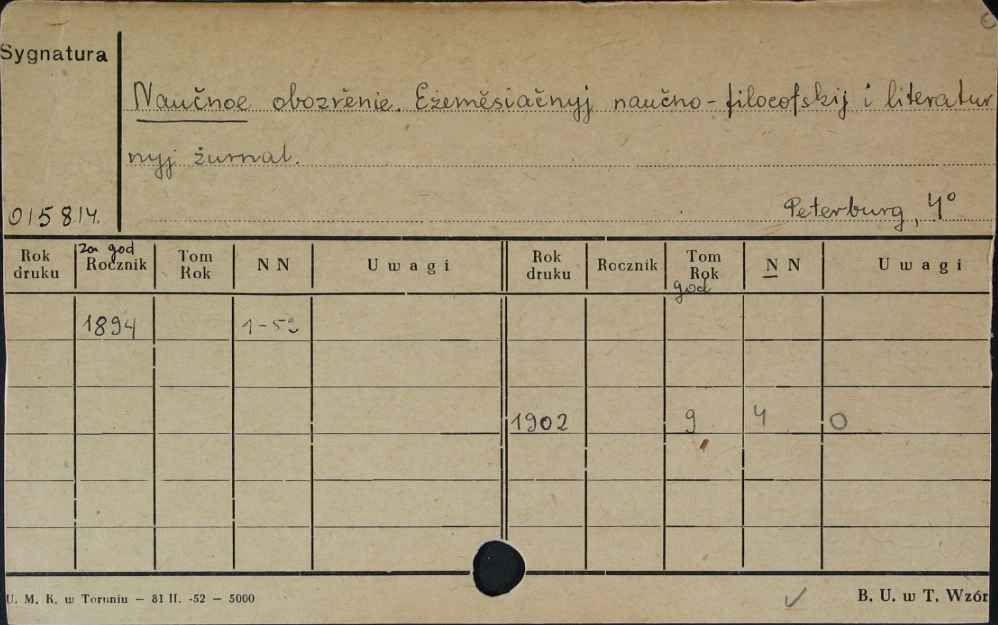 Sygnatura
Naučnoe obozrěnie. Ežeměsiačnyj naučno-filocofskij i literatur
nyj žurnal.
015814.
Peterburg, 4°
za god
god
Rok druku Rocznik Tom Rok NN Uwagi Rok druku Rocznik Tom Rok NN Uwagi
1894 1-52
1902 9 4 0
U. M. K. w Toruniu — 81 II. -52 — 5000
B. U. w T. Wzór